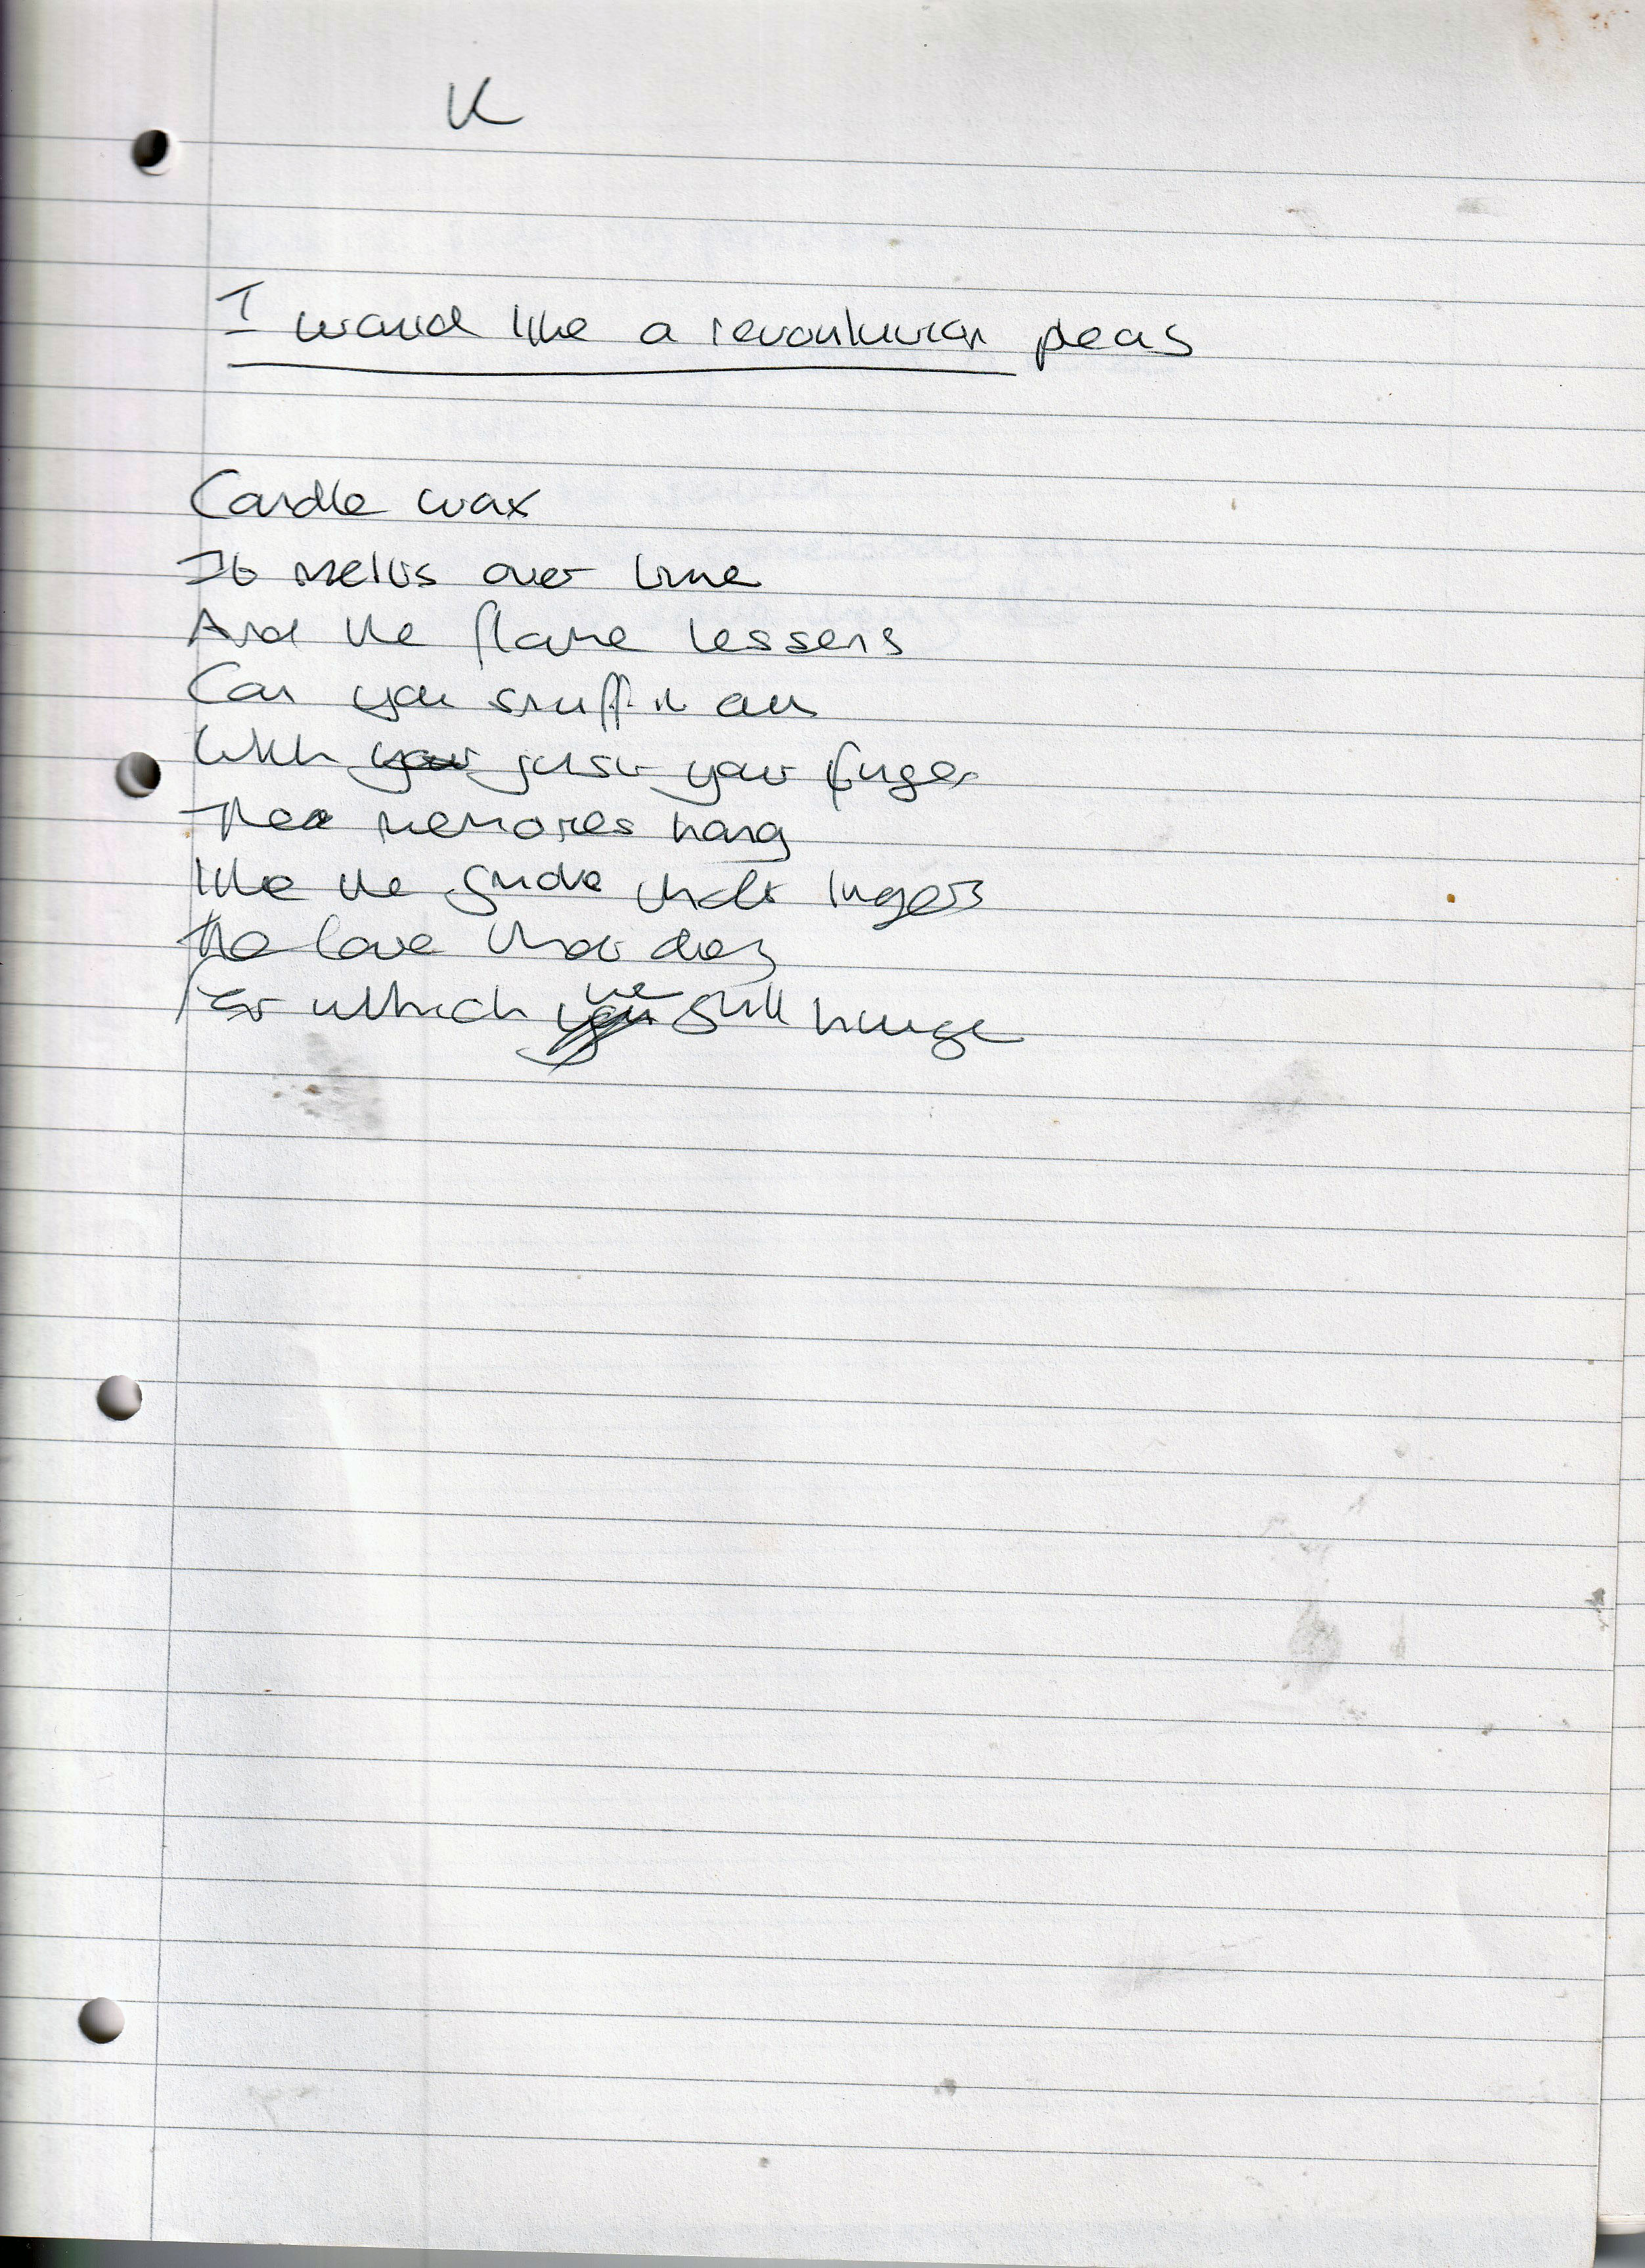 K
I would like a revolution pleas
Candle wax
It melts over time
And the flame lessens
Can you snuff it out
With your just your finger
The memories hang
like the smoke that lingers
The love that dies
For which you we still hunge